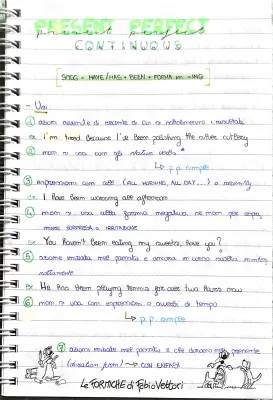 PRESENT PERFECT
present perfect
CONTINUOUS
SOGG + HAVE/HAS + BEEN + FORMA in -ING
- Usi
① azioni recenti di cui si notano i risultati
ex I'm tired because I've been polishing the cutlery
② non si usa con gli stative verbs
↳ p.p. simple
③ espressioni con all (ALL MORNING, ALL DAY...) o recently
ex I have been working all afternoon
④ non si usa alla forma negativa se non per
SORPRESA o IRRITAZIONE
ex You haven't been eating my sweets, have you?
⑤ azione iniziata nel passato e ancora in corso
ex He has been playing tennis for over two hours now
⑥ non si usa con espressioni di tempo
↳ p.p. simple
⑦ azioni iniziate nel passato e che durano nel presente
(duration form) → CON ENFASI
Le FORMICHE di Fabio Vettori